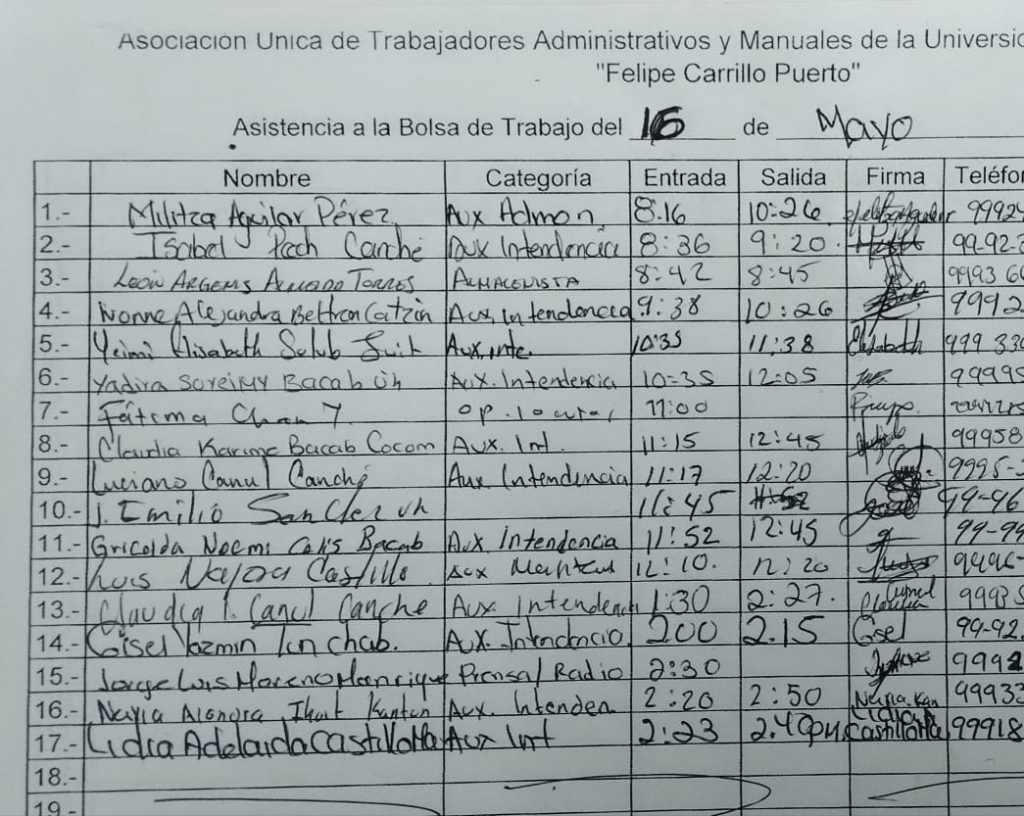 Asociación Unica de Trabajadores Administrativos y Manuales de la Universi
"Felipe Carrillo Puerto"
Asistencia a la Bolsa de Trabajo del 16 de Mayo
Nombre Categoría Entrada Salida Firma Teléfo
1.- Militza Aguilar Pérez Aux Admon 8.16 10:26 9992
2.- Isabel Pech Canché Aux Intendencia 8:36 9:20 99-92
3.- Leon Argems Amado Torres Almacenista 8:42 8:45 9993 6
4.- Ivonne Alejandra Beltran Catzin Aux. Intendencia 9:38 10:26 9992
5.- Yeimi Elisabeth Aux. inte. 10:35 11:38 Elisabeth 999 330
6.- Yadira Soreimy Bacab Uh Aux. Intendencia 10:35 12:05 99995
7.- Fátima Chan Y op. 11:00
8.- Claudia Karime Bacab Cocom Aux. Int. 11:15 12:45 99958
9.- Luciano Canul Canché Aux. Intendencia 11:17 12:20 9995-
10.- J. Emilio Sanchez Uh 11:45 99-96
11.- Gricelda Noemi Bacab Aux. Intendencia 11:52 12:45 99-99
12.- Luis Najera Castillo Aux 12:10. 12:20 9996-
13.- Claudia I. Canul Canche Aux. Intendenci 1:30 2:27. Canul Claudia 9993
14.- Gisel Yazmin Tun Chab. Aux. Intendencia. 200 2.15 Gisel 99-92
15.- Jorge Luis Moreno Manrique Prensa/Radio 2:30 999
16.- Nayla Alondra Ihuit Kantun Aux. Intenden 2:20 2:50 Nayla Kan 99933
17.- Lidia Adelaida Castilla Aux Int 2:23 2.40pm Lidia Castilla 99918
18.-
19.-